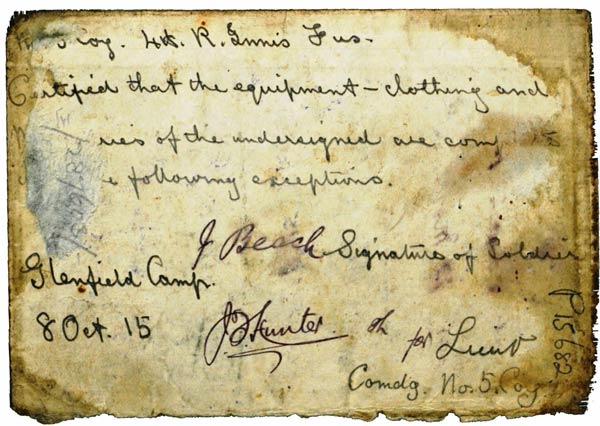 5 Coy. 4th. R. Innis Fus.
Certified that the equipment - clothing and
ries of the undersigned are comp
e following exceptions.
J Beech Signature of Soldier
Glenfield Camp.
8 Oct. 15
J Hunter for Lieut
Comdg. No. 5. Coy
P15682